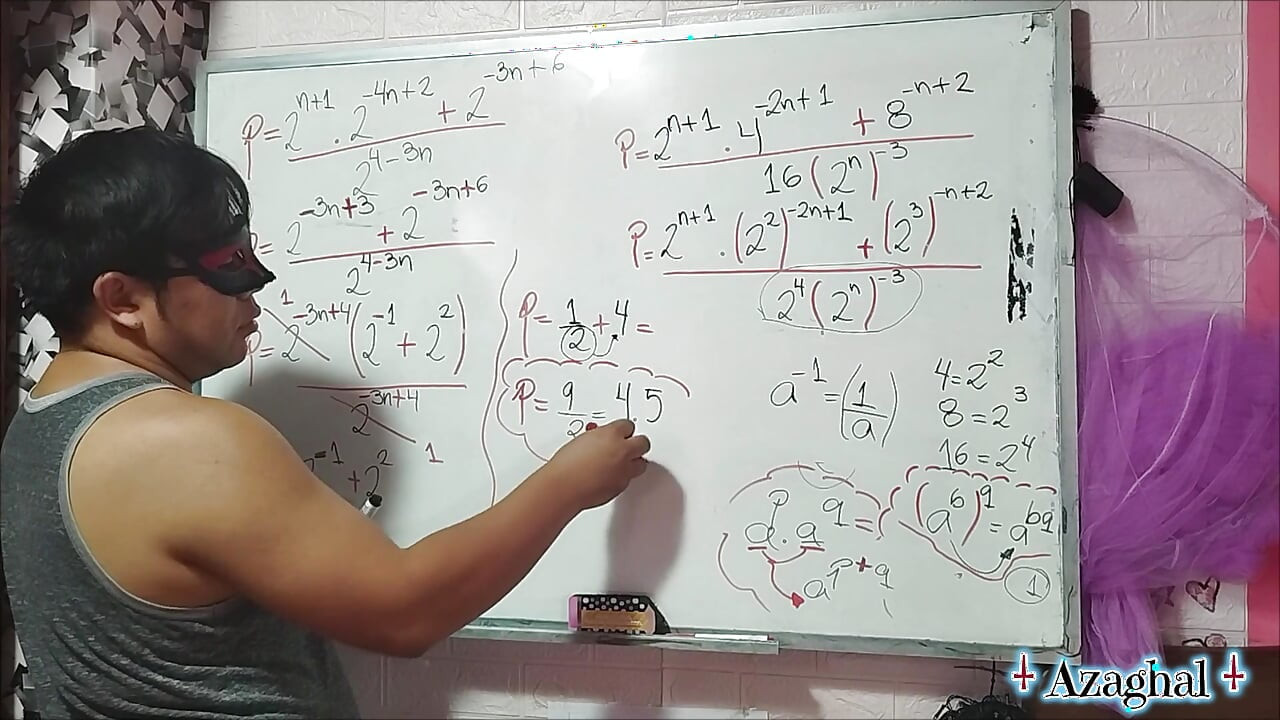 P = 2^{n+1} . 2^{-4n+2} + 2^{-3n+6}
2^{4-3n}
= 2^{-3n+3} + 2^{-3n+6}
2^{4-3n}
1
P = 2^{-3n+4} (2^{-1} + 2^2)
2^{-3n+4}
1
+ 2^2
P = 1/2 + 4 =
P = 9/2 = 4.5
P = 2^{n+1} . 4^{-2n+1} + 8^{-n+2}
16 (2^n)^{-3}
P = 2^{n+1} . (2^2)^{-2n+1} + (2^3)^{-n+2}
2^4 (2^n)^{-3}
a^{-1} = (1/a)
4 = 2^2
8 = 2^3
16 = 2^4
a^p . a^q =
a^{p+q}
(a^b)^q = a^{bq}
1
Azaghal